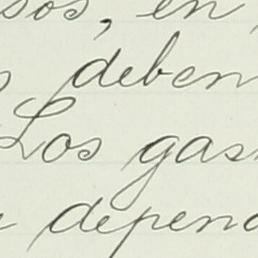 sos, en
deben
Los gas
depend